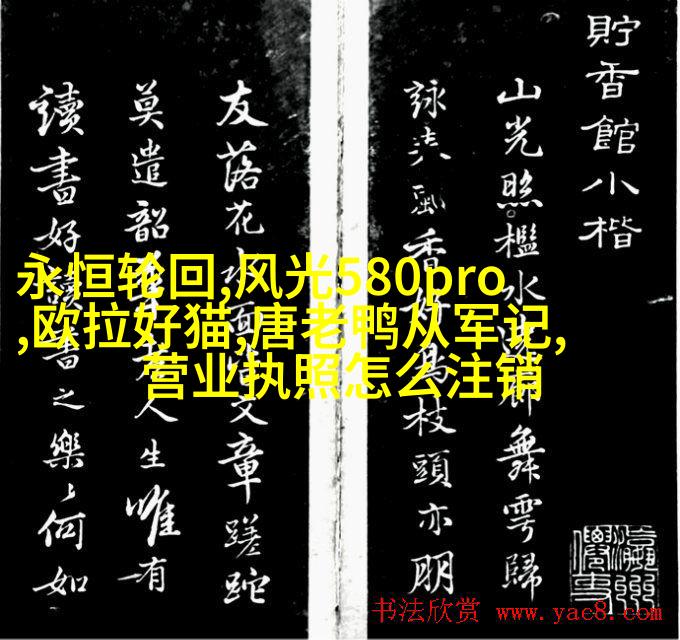 貯香館小楷
山光照檻水廊舞雩歸
詠春風香好鳥枝頭亦朋
友落花水面文章蹉跎
莫遣韶人生唯有
讀書好讀書之樂〻何如
永恒轮回,风光580pro
,欧拉好猫,唐老鸭从军记,
营业执照怎么注销
书法欣赏 www.yac8.com